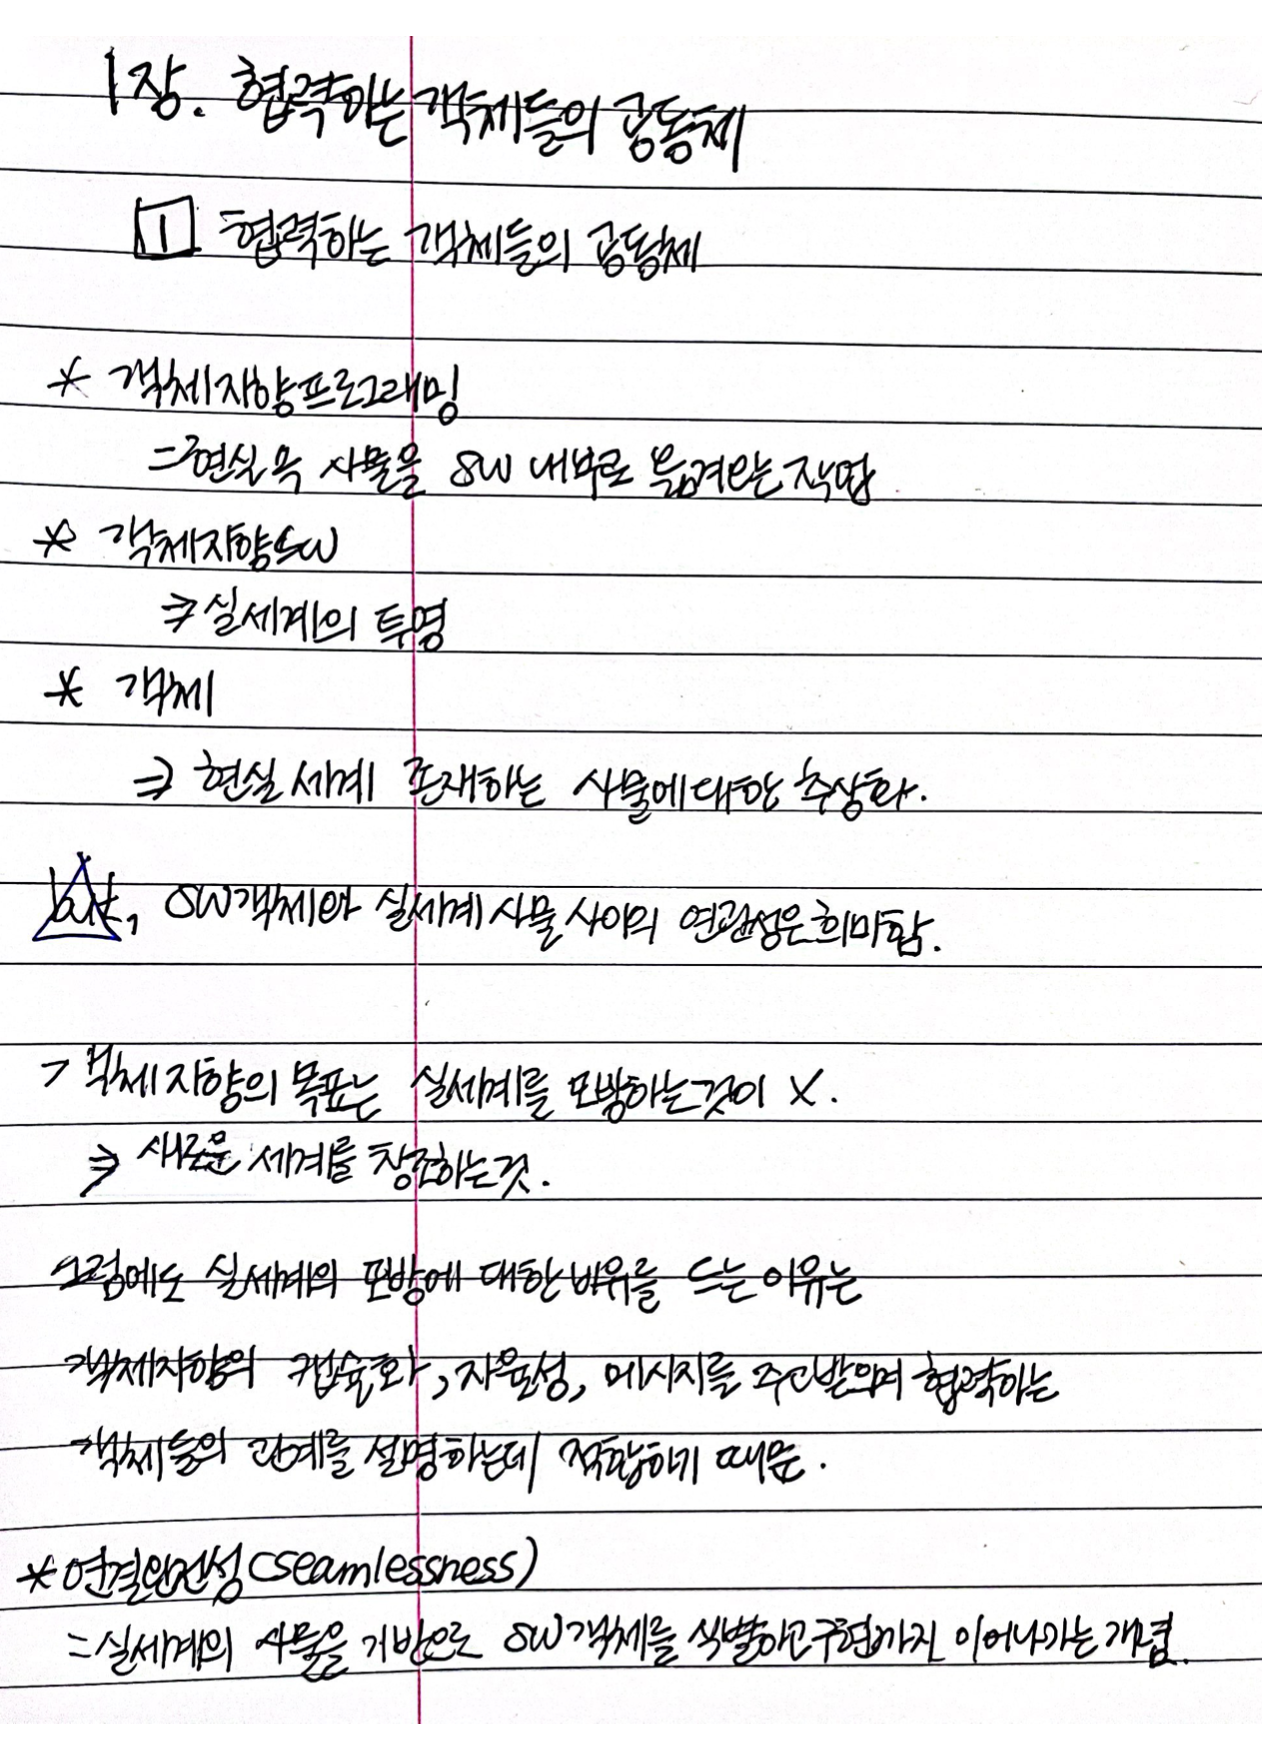 1장. 협력하는 객체들의 공동체
1 협력하는 객체들의 공동체
* 객체지향프로그래밍
= 현실 속 사물을 SW 내부로 옮겨오는 작업
* 객체지향SW
⇒ 실세계의 투영
* 객체
⇒ 현실 세계 존재하는 사물에 대한 추상화.
but, SW객체와 실세계 사물 사이의 연관성은 희미함.
> 객체지향의 목표는 실세계를 모방하는것이 X.
⇒ 새로운 세계를 창조하는것.
그럼에도 실세계의 모방에 대한 비유를 드는 이유는
객체지향의 캡슐화, 자율성, 메시지를 주고받으며 협력하는
객체들의 관계를 설명하는데 적합하기 때문.
* 연결완전성(seamlessness)
= 실세계의 사물을 기반으로 SW객체를 식별하고 구현까지 이어나가는 개념.